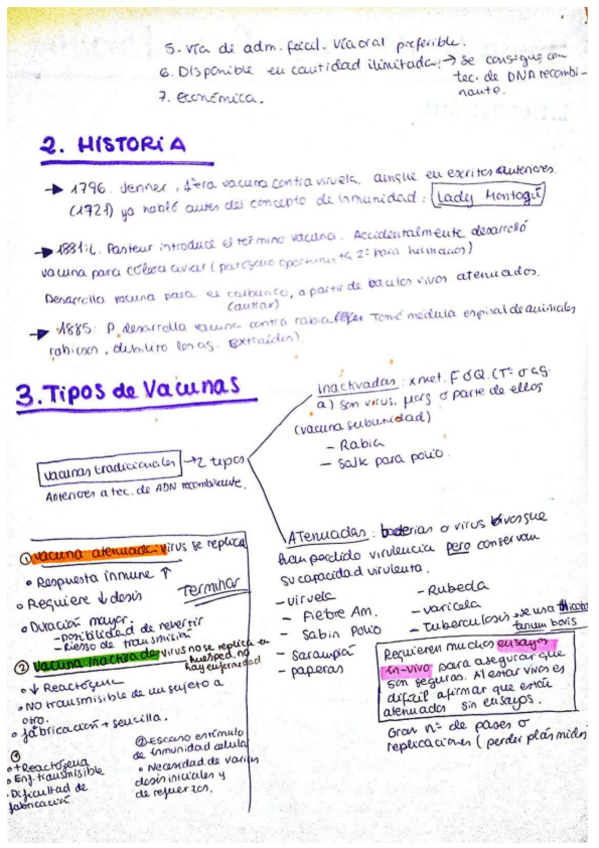 5. vía de adm. fácil. Vía oral preferible.
6. Disponible en cantidad ilimitada: → se consigue con
tec. de DNA recombi-
nante.
7. Económica.
2. HISTORIA
→ 1796. Jenner, 1era vacuna contra viruela, aunque en escritos anteriores
(1721) ya habló antes del concepto de inmunidad: Lady Montagú
→ 1881: L. Pasteur introduce el término vacuna. Accidentalmente desarrolló
vacuna para cólera aviar (patógeno oportunista 2º para humanos)
Desarrolla vacuna para el carbunco, a partir de bacilos vivos atenuados.
(antrax)
→ 1885: P. desarrolla vacuna contra rabia Tomó médula espinal de animales
rabiosos, debilitó los ag. extraídos).
3. Tipos de Vacunas
Inactivadas: x met. F ó Q. (Tº ó ag.
a) Son virus, o parte de ellos
(vacuna subunidad)
- Rabia
- Salk para polio.
vacunas tradicionales → 2 tipos
Anteriores a tec. de ADN recombinante.
Atenuadas: bacterias o virus vivos que
han perdido virulencia pero conservan
su capacidad virulenta.
- viruela
- Fiebre Am.
- Sabin Polio
- Sarampión
- paperas
- Rubeola
- varicela
- Tuberculosis → se usa
bovis
Requieren muchos ensayos
in-vivo para asegurar que
son seguras. Al estar vivos es
difícil afirmar que están
atenuados sin ensayos.
Gran nº de pases o
replicaciones (perder plásmidos
① vacuna atenuada: virus se replica
• Respuesta inmune ↑
• Requiere ↓ dosis
Terminar
• Duración mayor.
- posibilidad de revertir
- Riesgo de transmisión
② Vacuna inactivada: virus no se replica en
huésped, no
hay enfermedad
• ↓ Reactógena
• No transmisible de un sujeto a
otro.
• fabricación + sencilla.
①
• + Reactógena
• Enf. transmisible
• Dificultad de
fabricación
② Escaso estímulo
de inmunidad celular
• Necesidad de varias
dosis iniciales y
de refuerzos.